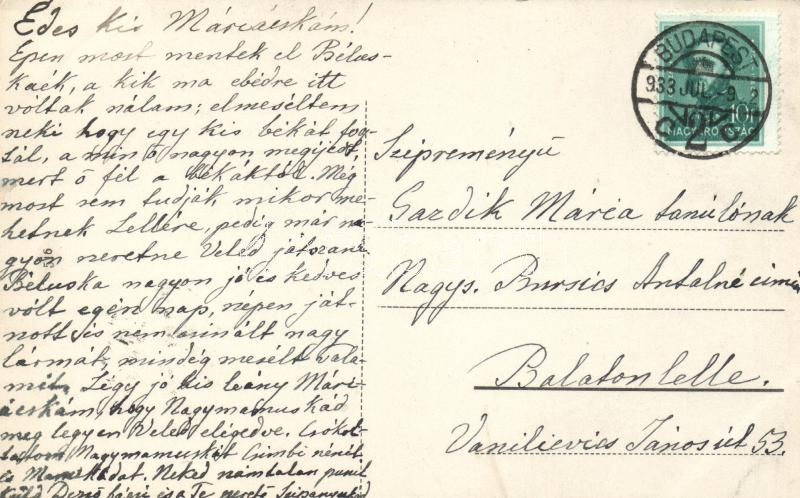 Édes kis Máriácskám!
Épen most mentek el Bélus-
kaék, a kik ma ebédre itt
voltak nálam; elmeséltem
neki hogy egy kis békát fog-
tál, a min ő nagyon megijedt,
mert ő fél a békáktól. Még
most sem tudják mikor me-
hetnek Lellére, pedig már na-
gyon szeretne Veled játszani
Béluska nagyon jó és kedves
vólt egész nap, szépen ját-
szott is nem csinált nagy
lármát, mindég mesélt vala-
mit. Légy jó kis leány Mári-
ácskám, hogy Nagymamuskád
meg legyen Veled elégedve. Csókol-
tatom Nagymamuskát Csimbi nénit
és Mamukádat. Neked számtalan puszit
küld Dezső bácsi és a Te szerető
BUDAPEST
933 JUL. -9.
2
10f
MAGYARORSZÁG
Szépreményű
Gazdik Mária tanúlónak
Nagys. Bursics Antalné címén
Balatonlelle.
János út 53.